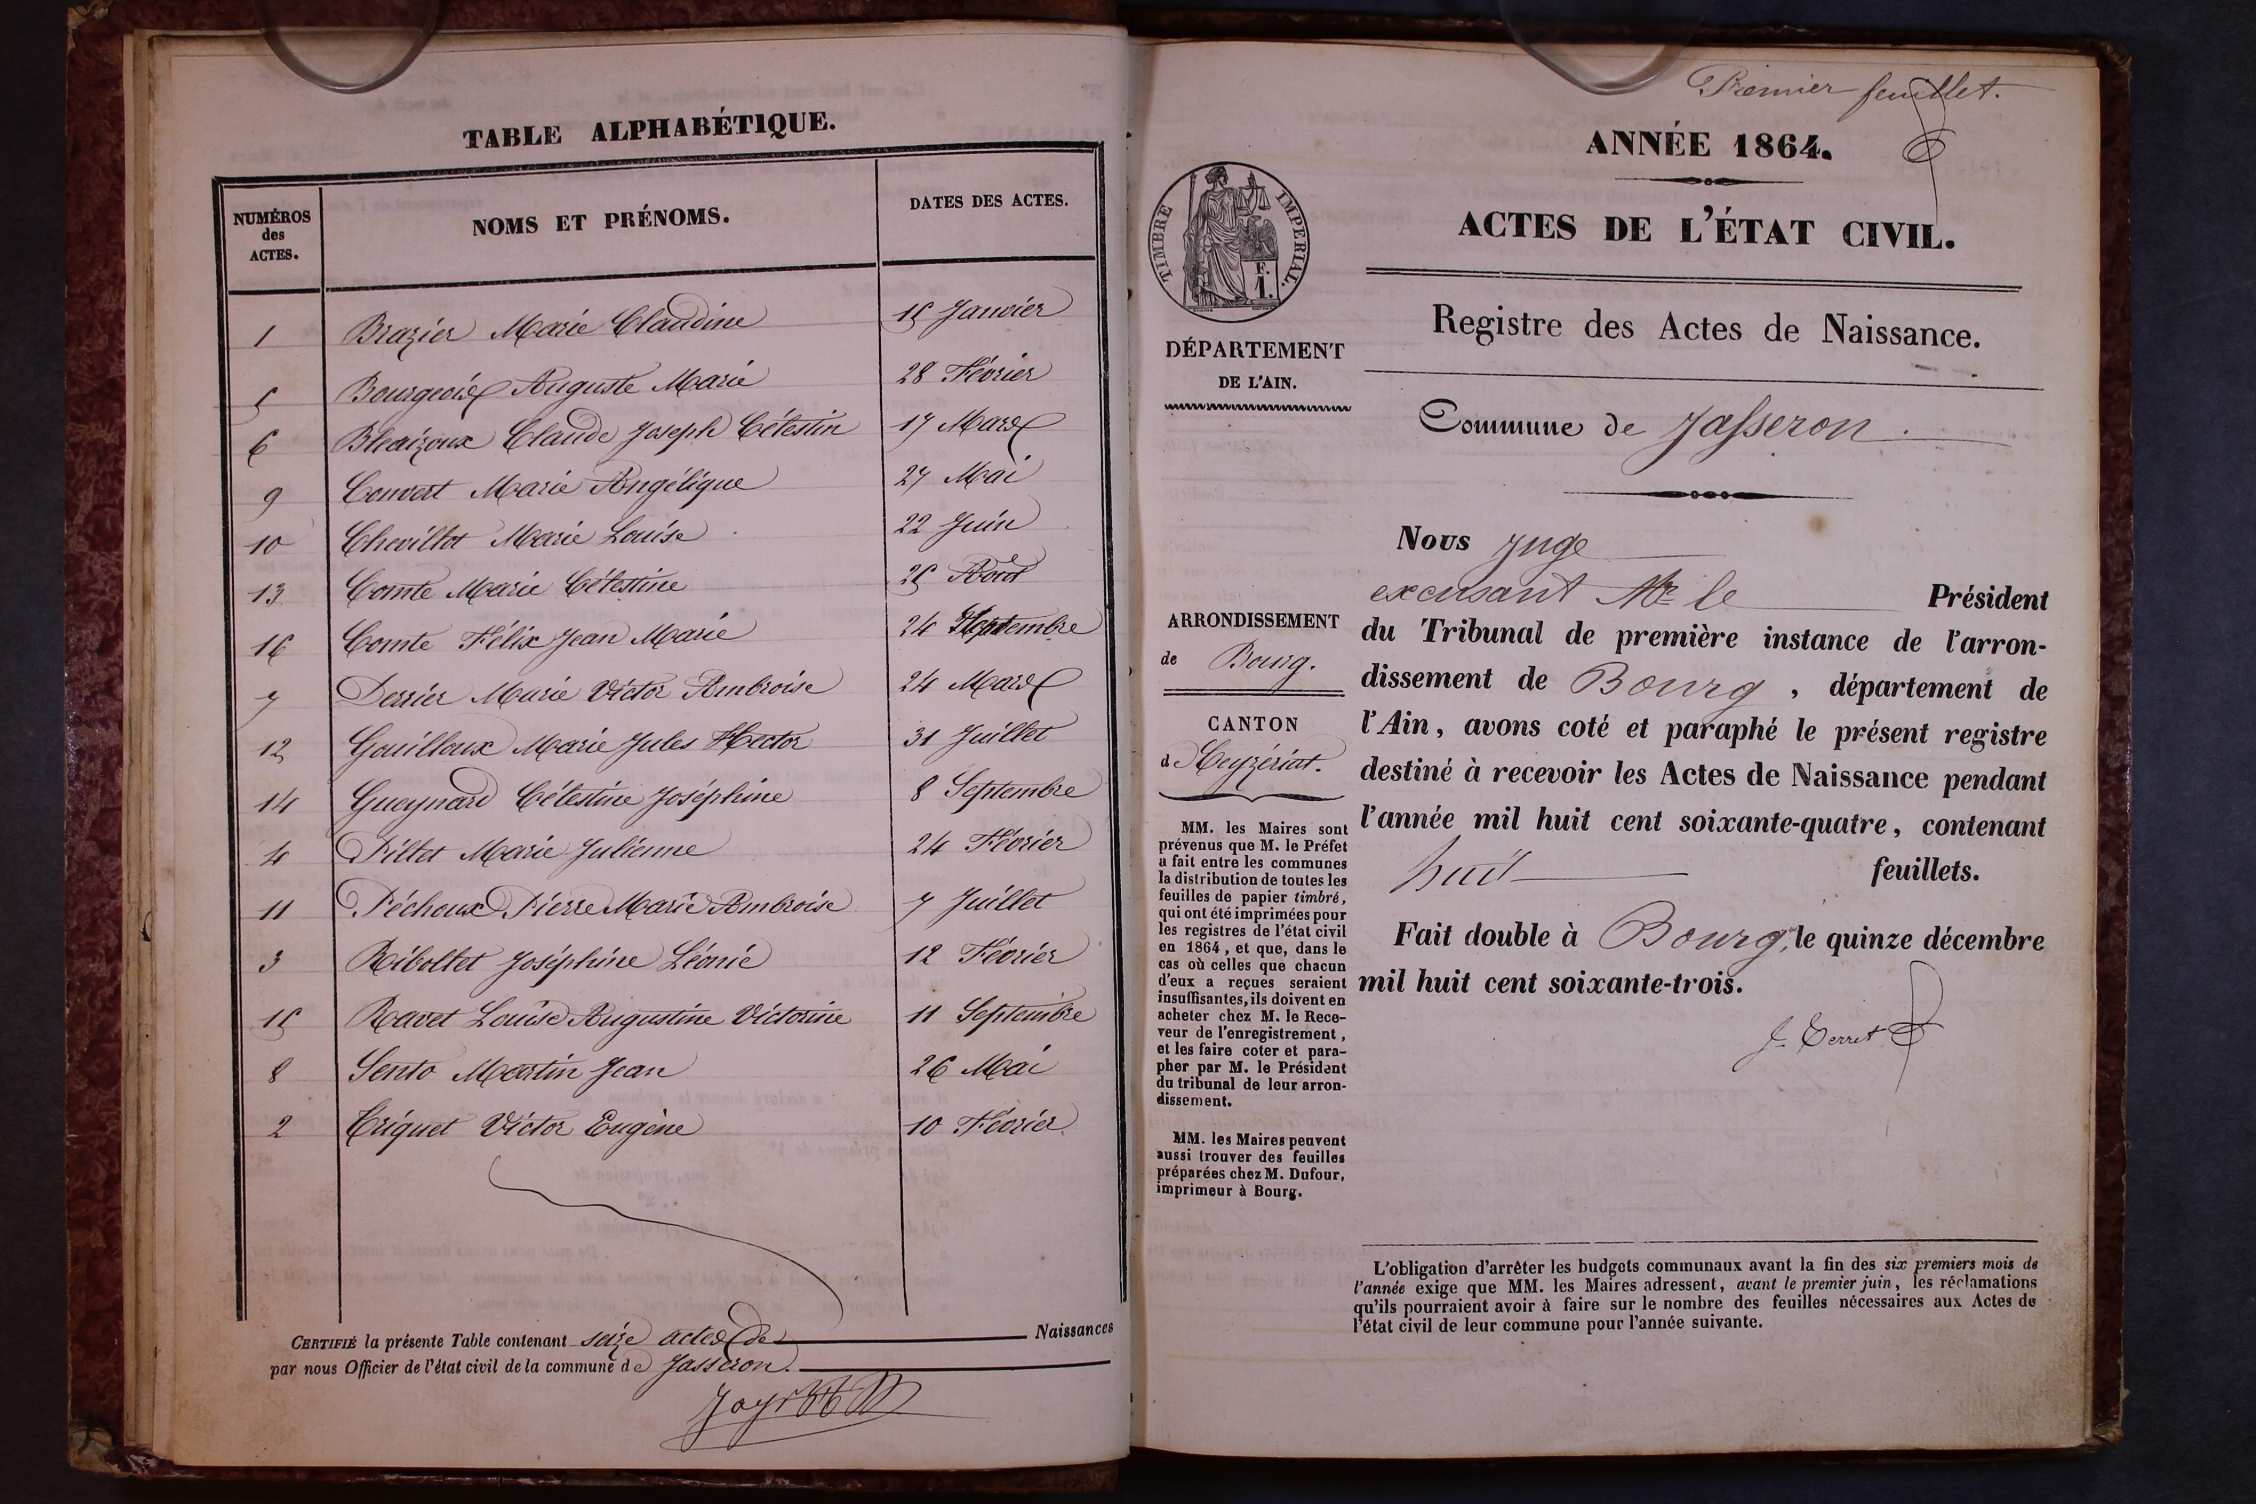 TABLE ALPHABÉTIQUE.
NUMÉROS
des
ACTES.
NOMS ET PRÉNOMS.
DATES DES ACTES.
1 Brazier Marie Claudine 15 Janvier
5 Bourgeois Auguste Marie 28 Février
6 Bleaizoux Claude Joseph Célestin 17 Mars
9 Convert Marie Angélique 27 Mai
10 Chevillot Marie Louise 22 Juin
13 Comte Marie Célestine 25 Août
16 Comte Félix Jean Marie 24 Septembre
7 Derrier Marie Victor Ambroise 24 Mars
12 Gouilloux Marie Jules Hector 31 Juillet
14 Gueynard Célestine Joséphine 8 Septembre
4 Pillet Marie Julienne 24 Février
11 Péchoux Pierre Marie Ambroise 7 Juillet
3 Ribollet Joséphine Léonie 12 Février
15 Ravet Louise Augustine Victorine 11 Septembre
8 Sento Martin Jean 26 Mai
2 Triquet Victor Eugène 10 Février
CERTIFIÉ la présente Table contenant seize actes de Naissances
par nous Officier de l'état civil de la commune de Jasseron.
Premier feuillet.
ANNÉE 1864.
ACTES DE L'ÉTAT CIVIL.
Registre des Actes de Naissance.
Commune de Jasseron.
TIMBRE IMPERIAL.
F.
1.
DÉPARTEMENT
DE L'AIN.
ARRONDISSEMENT
de Bourg.
CANTON
d Ceyzériat.
MM. les Maires sont
prévenus que M. le Préfet
a fait entre les communes
la distribution de toutes les
feuilles de papier timbré,
qui ont été imprimées pour
les registres de l'état civil
en 1864, et que, dans le
cas où celles que chacun
d'eux a reçues seraient
insuffisantes, ils doivent en
acheter chez M. le Rece-
veur de l'enregistrement,
et les faire coter et para-
pher par M. le Président
du tribunal de leur arron-
dissement.
MM. les Maires peuvent
aussi trouver des feuilles
préparées chez M. Dufour,
imprimeur à Bourg.
Nous Juge
excusant Mr le Président
du Tribunal de première instance de l'arron-
dissement de Bourg, département de
l'Ain, avons coté et paraphé le présent registre
destiné à recevoir les Actes de Naissance pendant
l'année mil huit cent soixante-quatre, contenant
huit feuillets.
Fait double à Bourg, le quinze décembre
mil huit cent soixante-trois.
J. Terret
L'obligation d'arrêter les budgets communaux avant la fin des six premiers mois de
l'année exige que MM. les Maires adressent, avant le premier juin, les réclamations
qu'ils pourraient avoir à faire sur le nombre des feuilles nécessaires aux Actes de
l'état civil de leur commune pour l'année suivante.